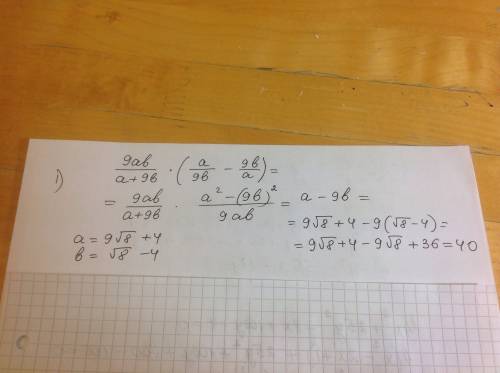 1) 9ab/(a+9b) · (a/9b − 9b/a) =
= 9ab/(a+9b) · (a² − (9b)²)/9ab = a − 9b =
a = 9√8 + 4
= 9√8 + 4 − 9(√8 − 4) =
b = √8 − 4
= 9√8 + 4 − 9√8 + 36 = 40